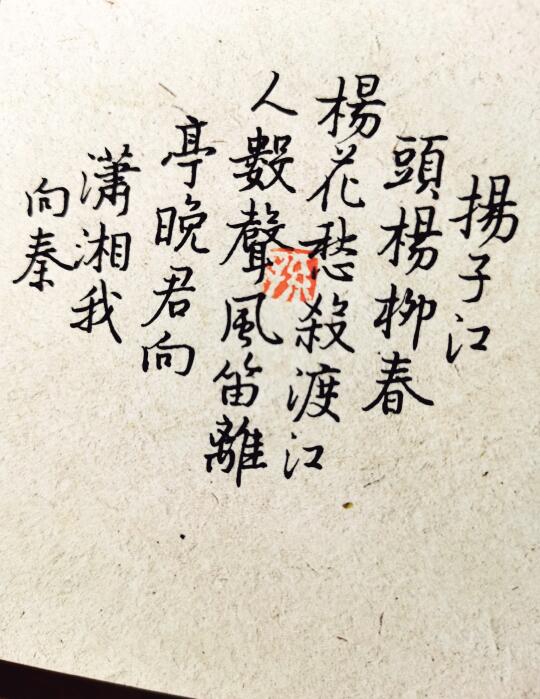 揚子江
頭楊柳春
楊花愁殺渡江
人數聲風笛離
亭晚君向
瀟湘我
向秦